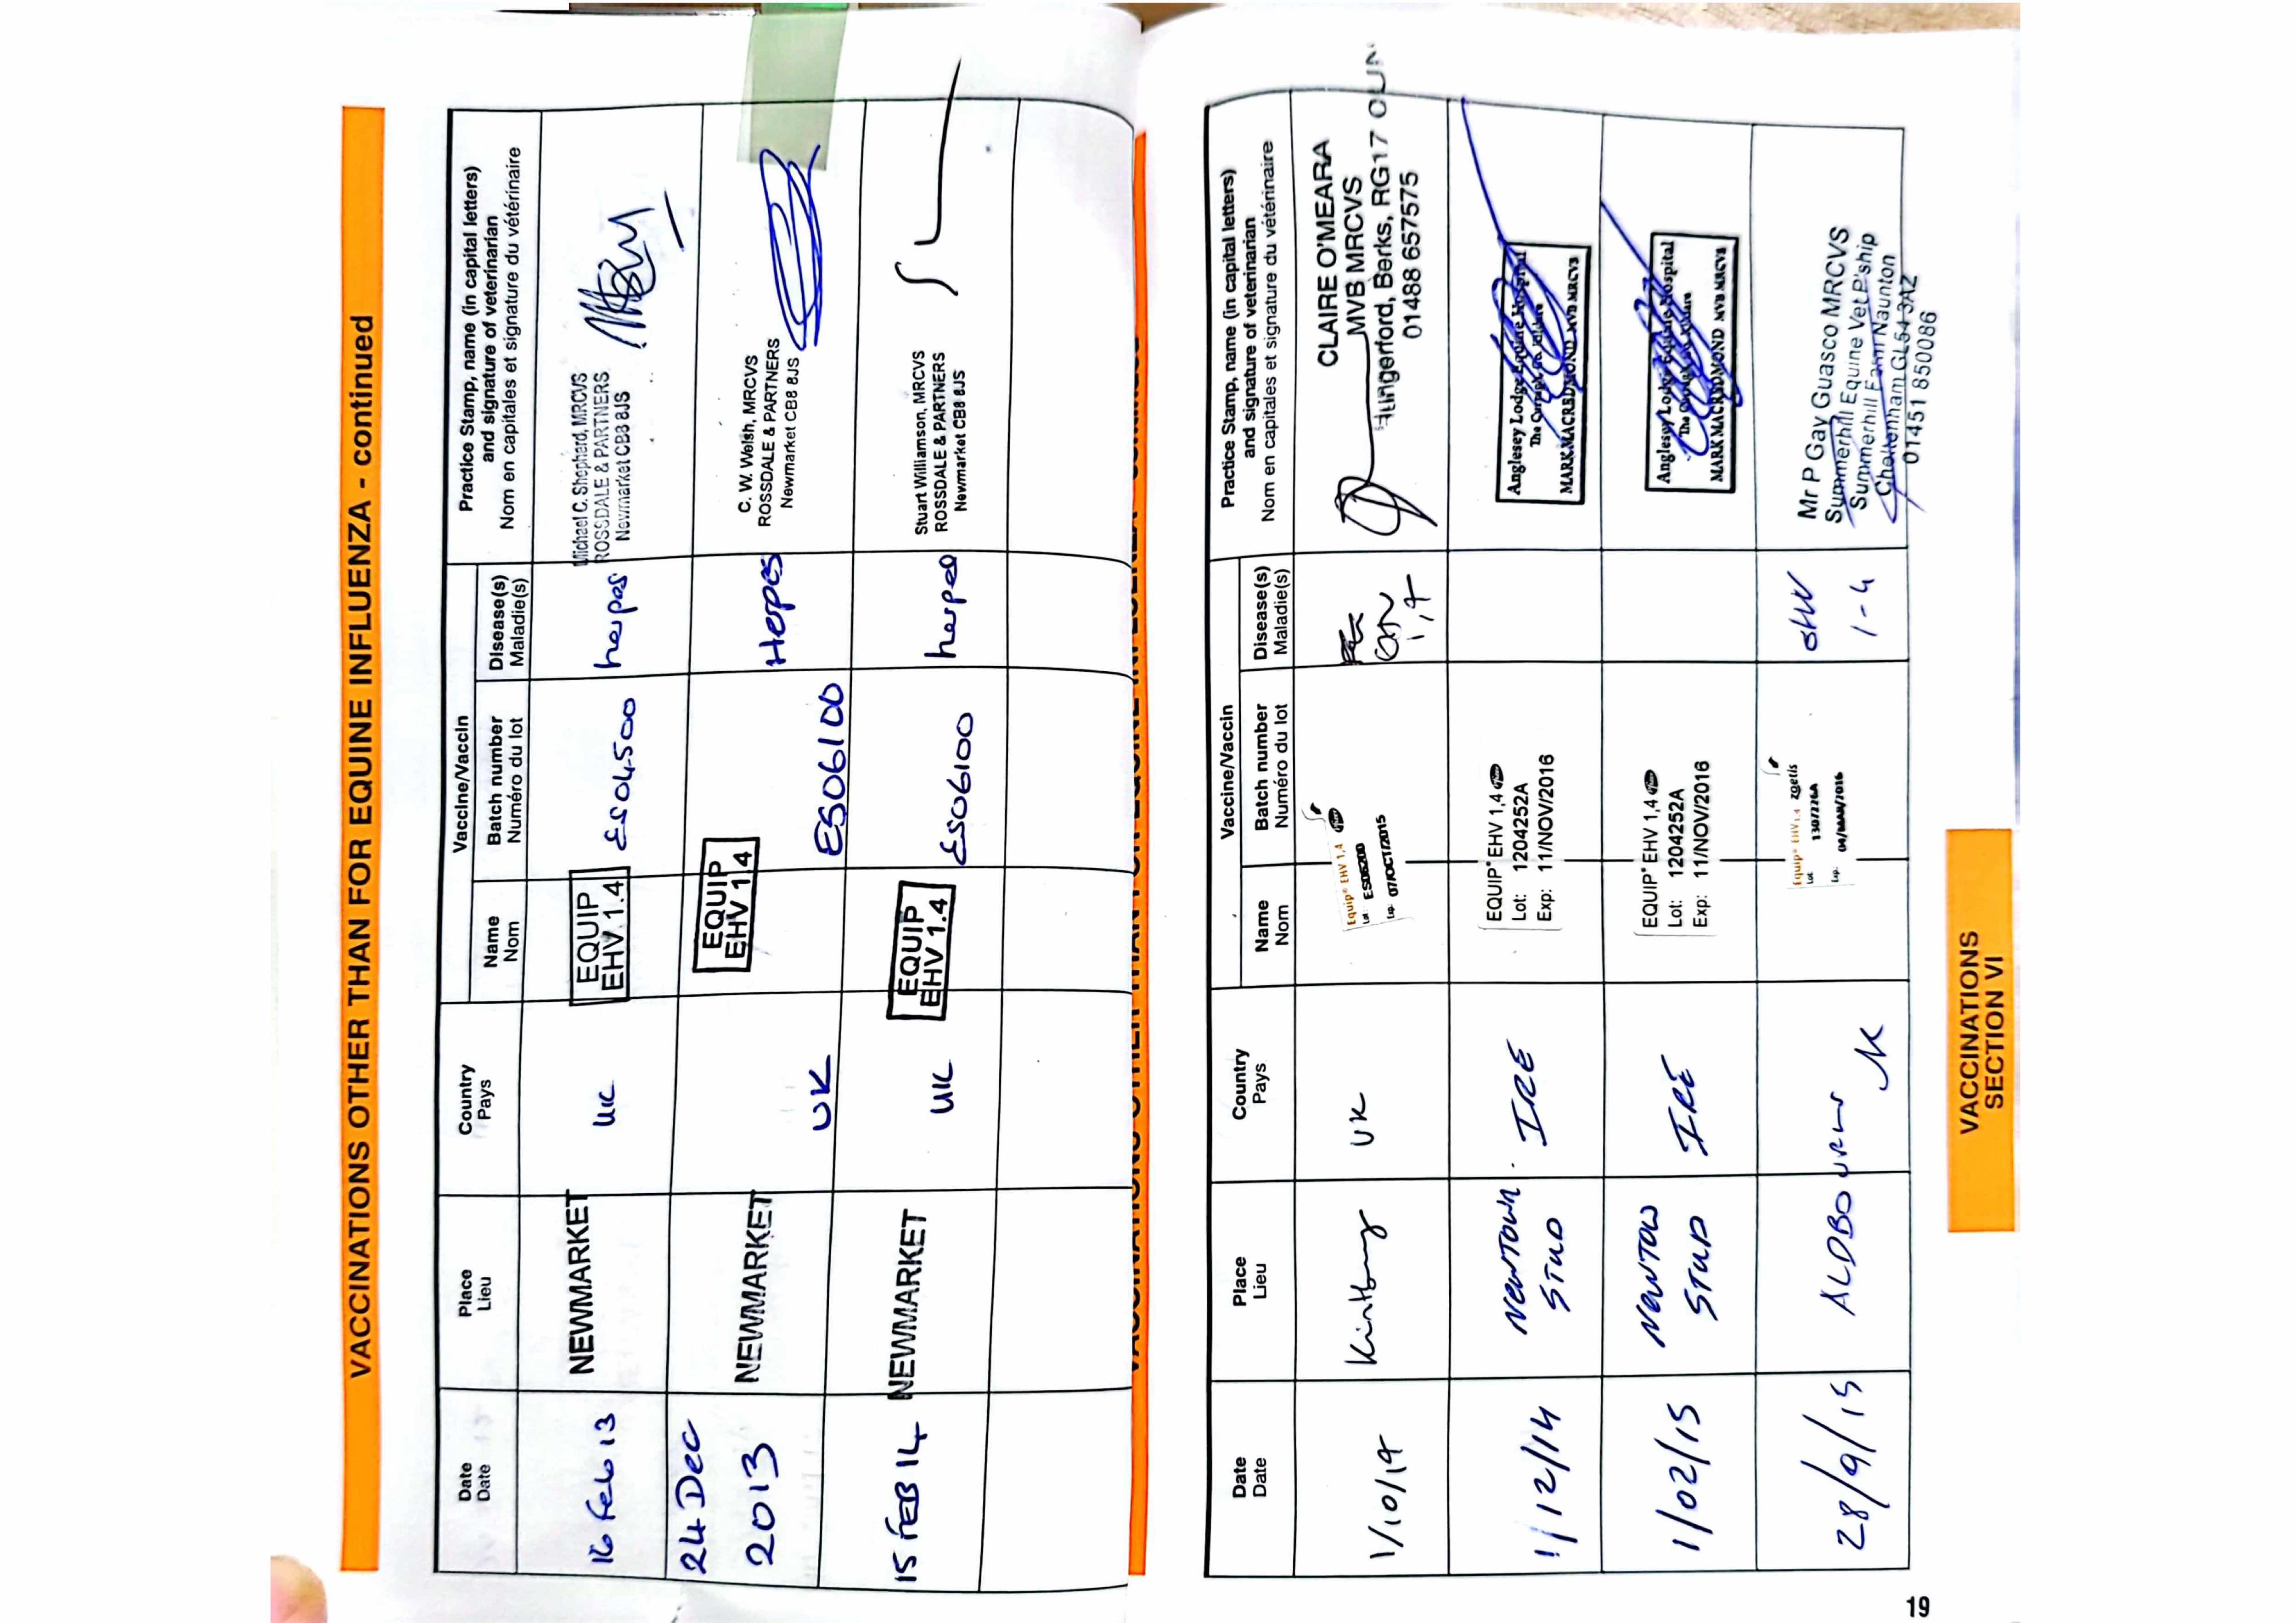 VACCINATIONS OTHER THAN FOR EQUINE INFLUENZA - continued
Date
Date
Place
Lieu
Country
Pays
Vaccine/Vaccin
Name
Nom
Batch number
Numéro du lot
Disease(s)
Maladie(s)
Practice Stamp, name (in capital letters)
and signature of veterinarian
Nom en capitales et signature du vétérinaire
16 Feb 13
NEWMARKET
UK
EQUIP
EHV 1.4
ES04500
herpes
Michael C. Shepherd, MRCVS
ROSSDALE & PARTNERS
Newmarket CB8 8JS
24 Dec
2013
NEWMARKET
UK
EQUIP
EHV 1.4
ES06100
Herpes
C. W. Welsh, MRCVS
ROSSDALE & PARTNERS
Newmarket CB8 8JS
15 FEB 14
NEWMARKET
UK
EQUIP
EHV 1.4
ES06100
herpes
Stuart Williamson, MRCVS
ROSSDALE & PARTNERS
Newmarket CB8 8JS
Date
Date
Place
Lieu
Country
Pays
Vaccine/Vaccin
Name
Nom
Batch number
Numéro du lot
Disease(s)
Maladie(s)
Practice Stamp, name (in capital letters)
and signature of veterinarian
Nom en capitales et signature du vétérinaire
1/10/14
Kintbury
UK
Equip® EHV 1,4
Lot ES06200
Exp. 07/OCT/2015
1,4
CLAIRE O'MEARA
MVB MRCVS
Hungerford, Berks, RG17
01488 657575
1/12/14
NEWTOWN
STUD
IRE
EQUIP® EHV 1,4
Lot: 1204252A
Exp: 11/NOV/2016
Anglesey Lodge Equine Hospital
The Curragh Co Kildare
MARK MACREDMOND MVB MRCVS
1/02/15
NEWTOW
STUD
IRE
EQUIP® EHV 1,4
Lot: 1204252A
Exp: 11/NOV/2016
Anglesey Lodge Equine Hospital
The Curragh Co Kildare
MARK MACREDMOND MVB MRCVS
28/9/15
ALDBOURNE
UK
Equip® EHV 1,4 zoetis
Lot
Exp. 04/MAR/2016
EHV
1-4
Mr P Gay Guasco MRCVS
Summerhill Equine Vet P'ship
Summerhill Farm Naunton
Cheltenham GL54 3AZ
01451 850086
VACCINATIONS
SECTION VI
19